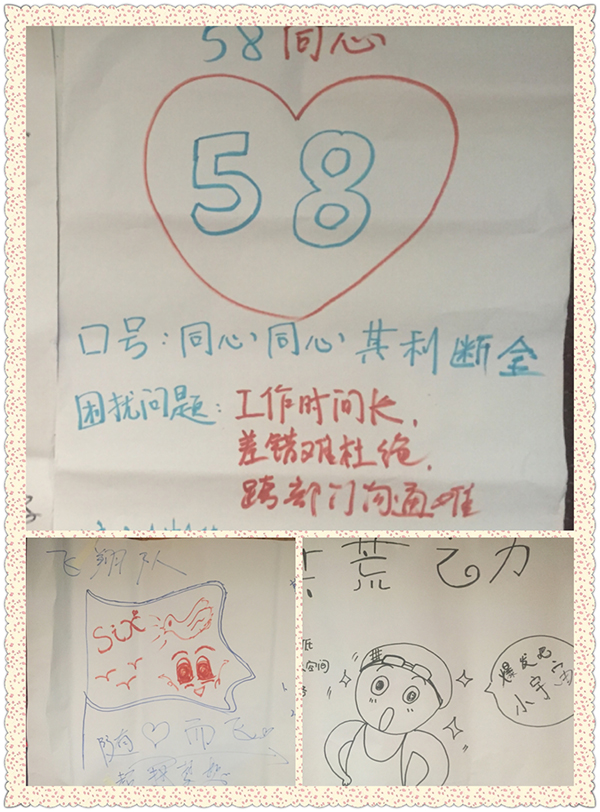 58同心
58
口号:同心,同心,其利断金
困扰问题:工作时间长,
差错难杜绝,
跨部门沟通难
飞翔队
Six
随♡而飞
荒之力
空间
爆发吧
小宇宙